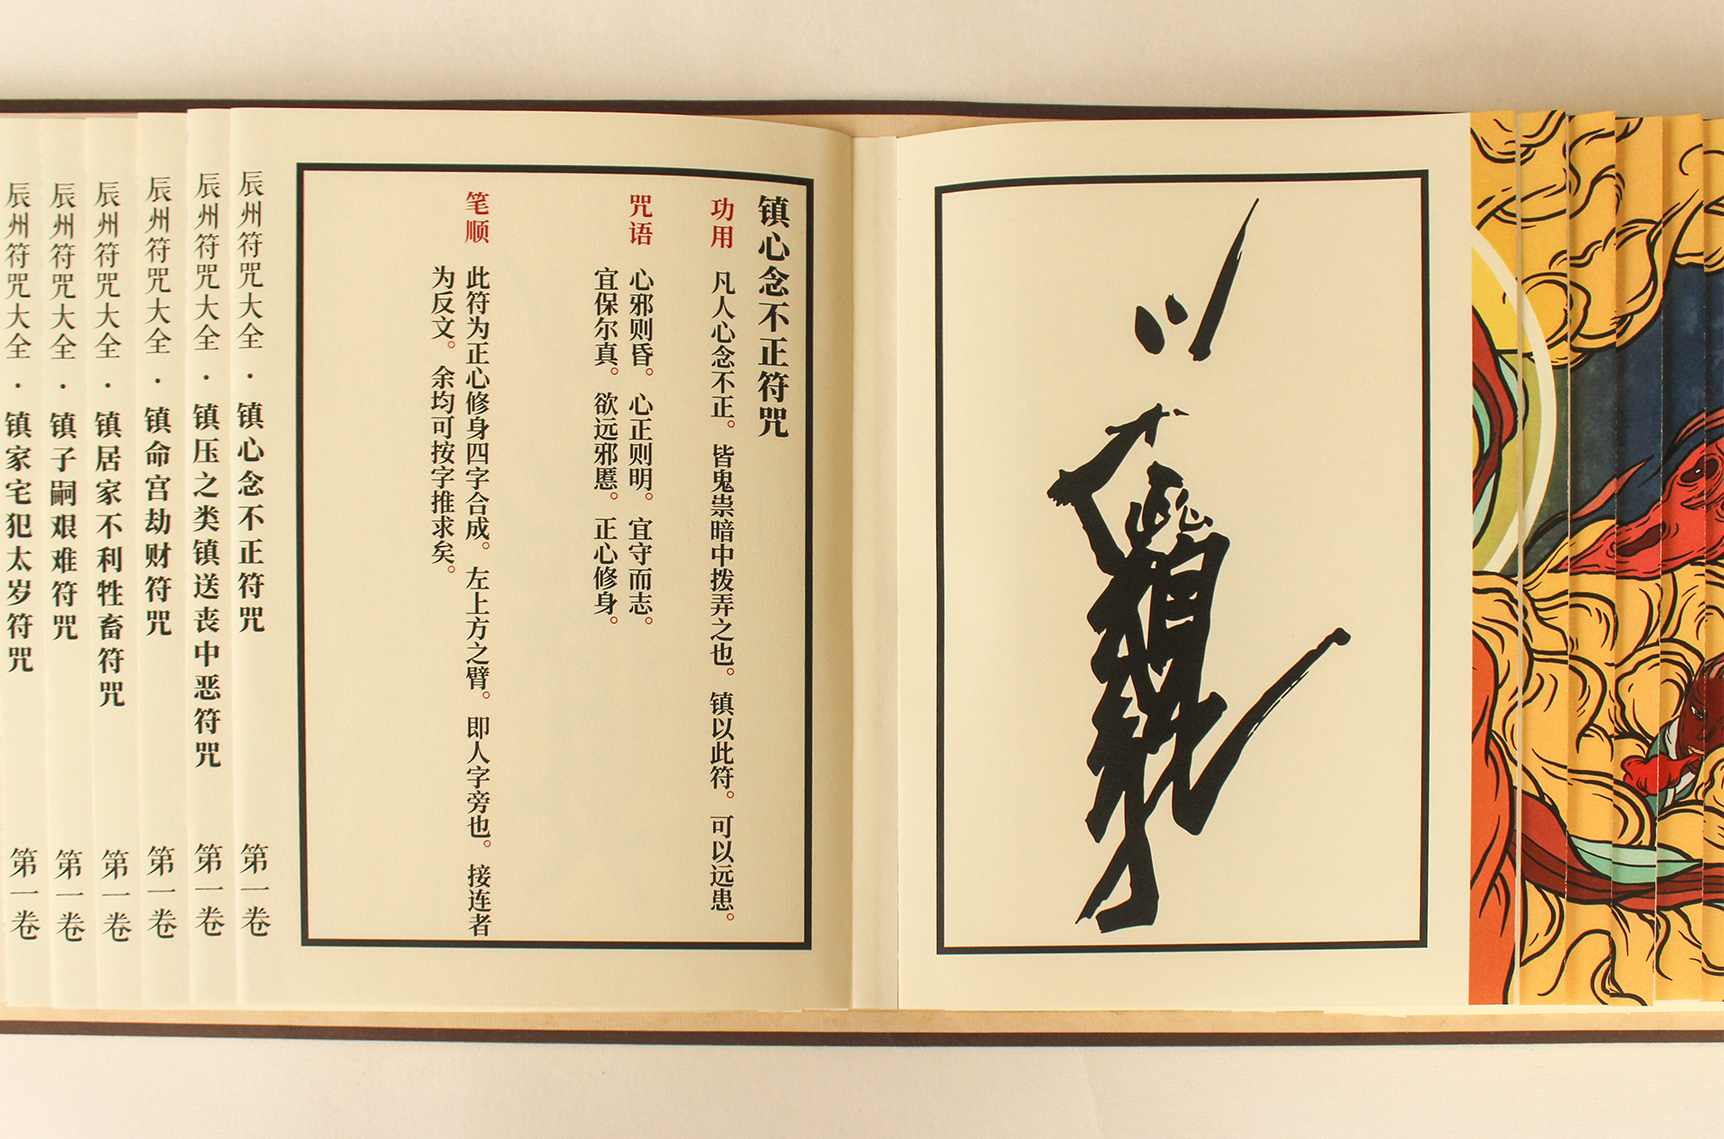 镇心念不正符咒
功用 凡人心念不正。皆鬼祟暗中拨弄之也。镇以此符。可以远患。
咒语 心邪则昏。心正则明。宜守而志。
宜保尔真。欲远邪慝。正心修身。
笔顺 此符为正心修身四字合成。左上方之臂。即人字旁也。接连者
为反文。余均可按字推求矣。
辰州符咒大全·镇心念不正符咒 第一卷
辰州符咒大全·镇压之类镇送丧中恶符咒 第一卷
辰州符咒大全·镇命宫劫财符咒 第一卷
辰州符咒大全·镇居家不利牲畜符咒 第一卷
辰州符咒大全·镇子嗣艰难符咒 第一卷
辰州符咒大全·镇家宅犯太岁符咒 第一卷